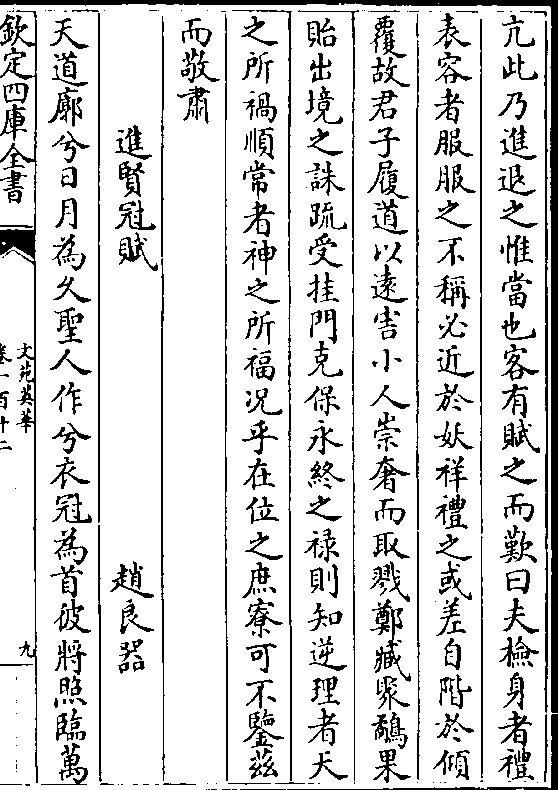 亢此乃進退之惟當也客有賦之而歎曰夫檢身者禮
表容者服服之不稱必近於妖祥禮之或差自階於傾
覆故君子履道以遠害小人崇奢而取戮鄭臧聚鷸果
貽出境之誅疏受挂門克保永終之祿則知逆理者天
之所禍順常者神之所福况乎在位之庶寮可不鑒茲
而敬肅
進賢冠賦
趙良器
天道廓兮日月為久聖人作兮衣冠為首彼將照臨萬
欽定四庫全書
文苑英華
卷一百十二
九